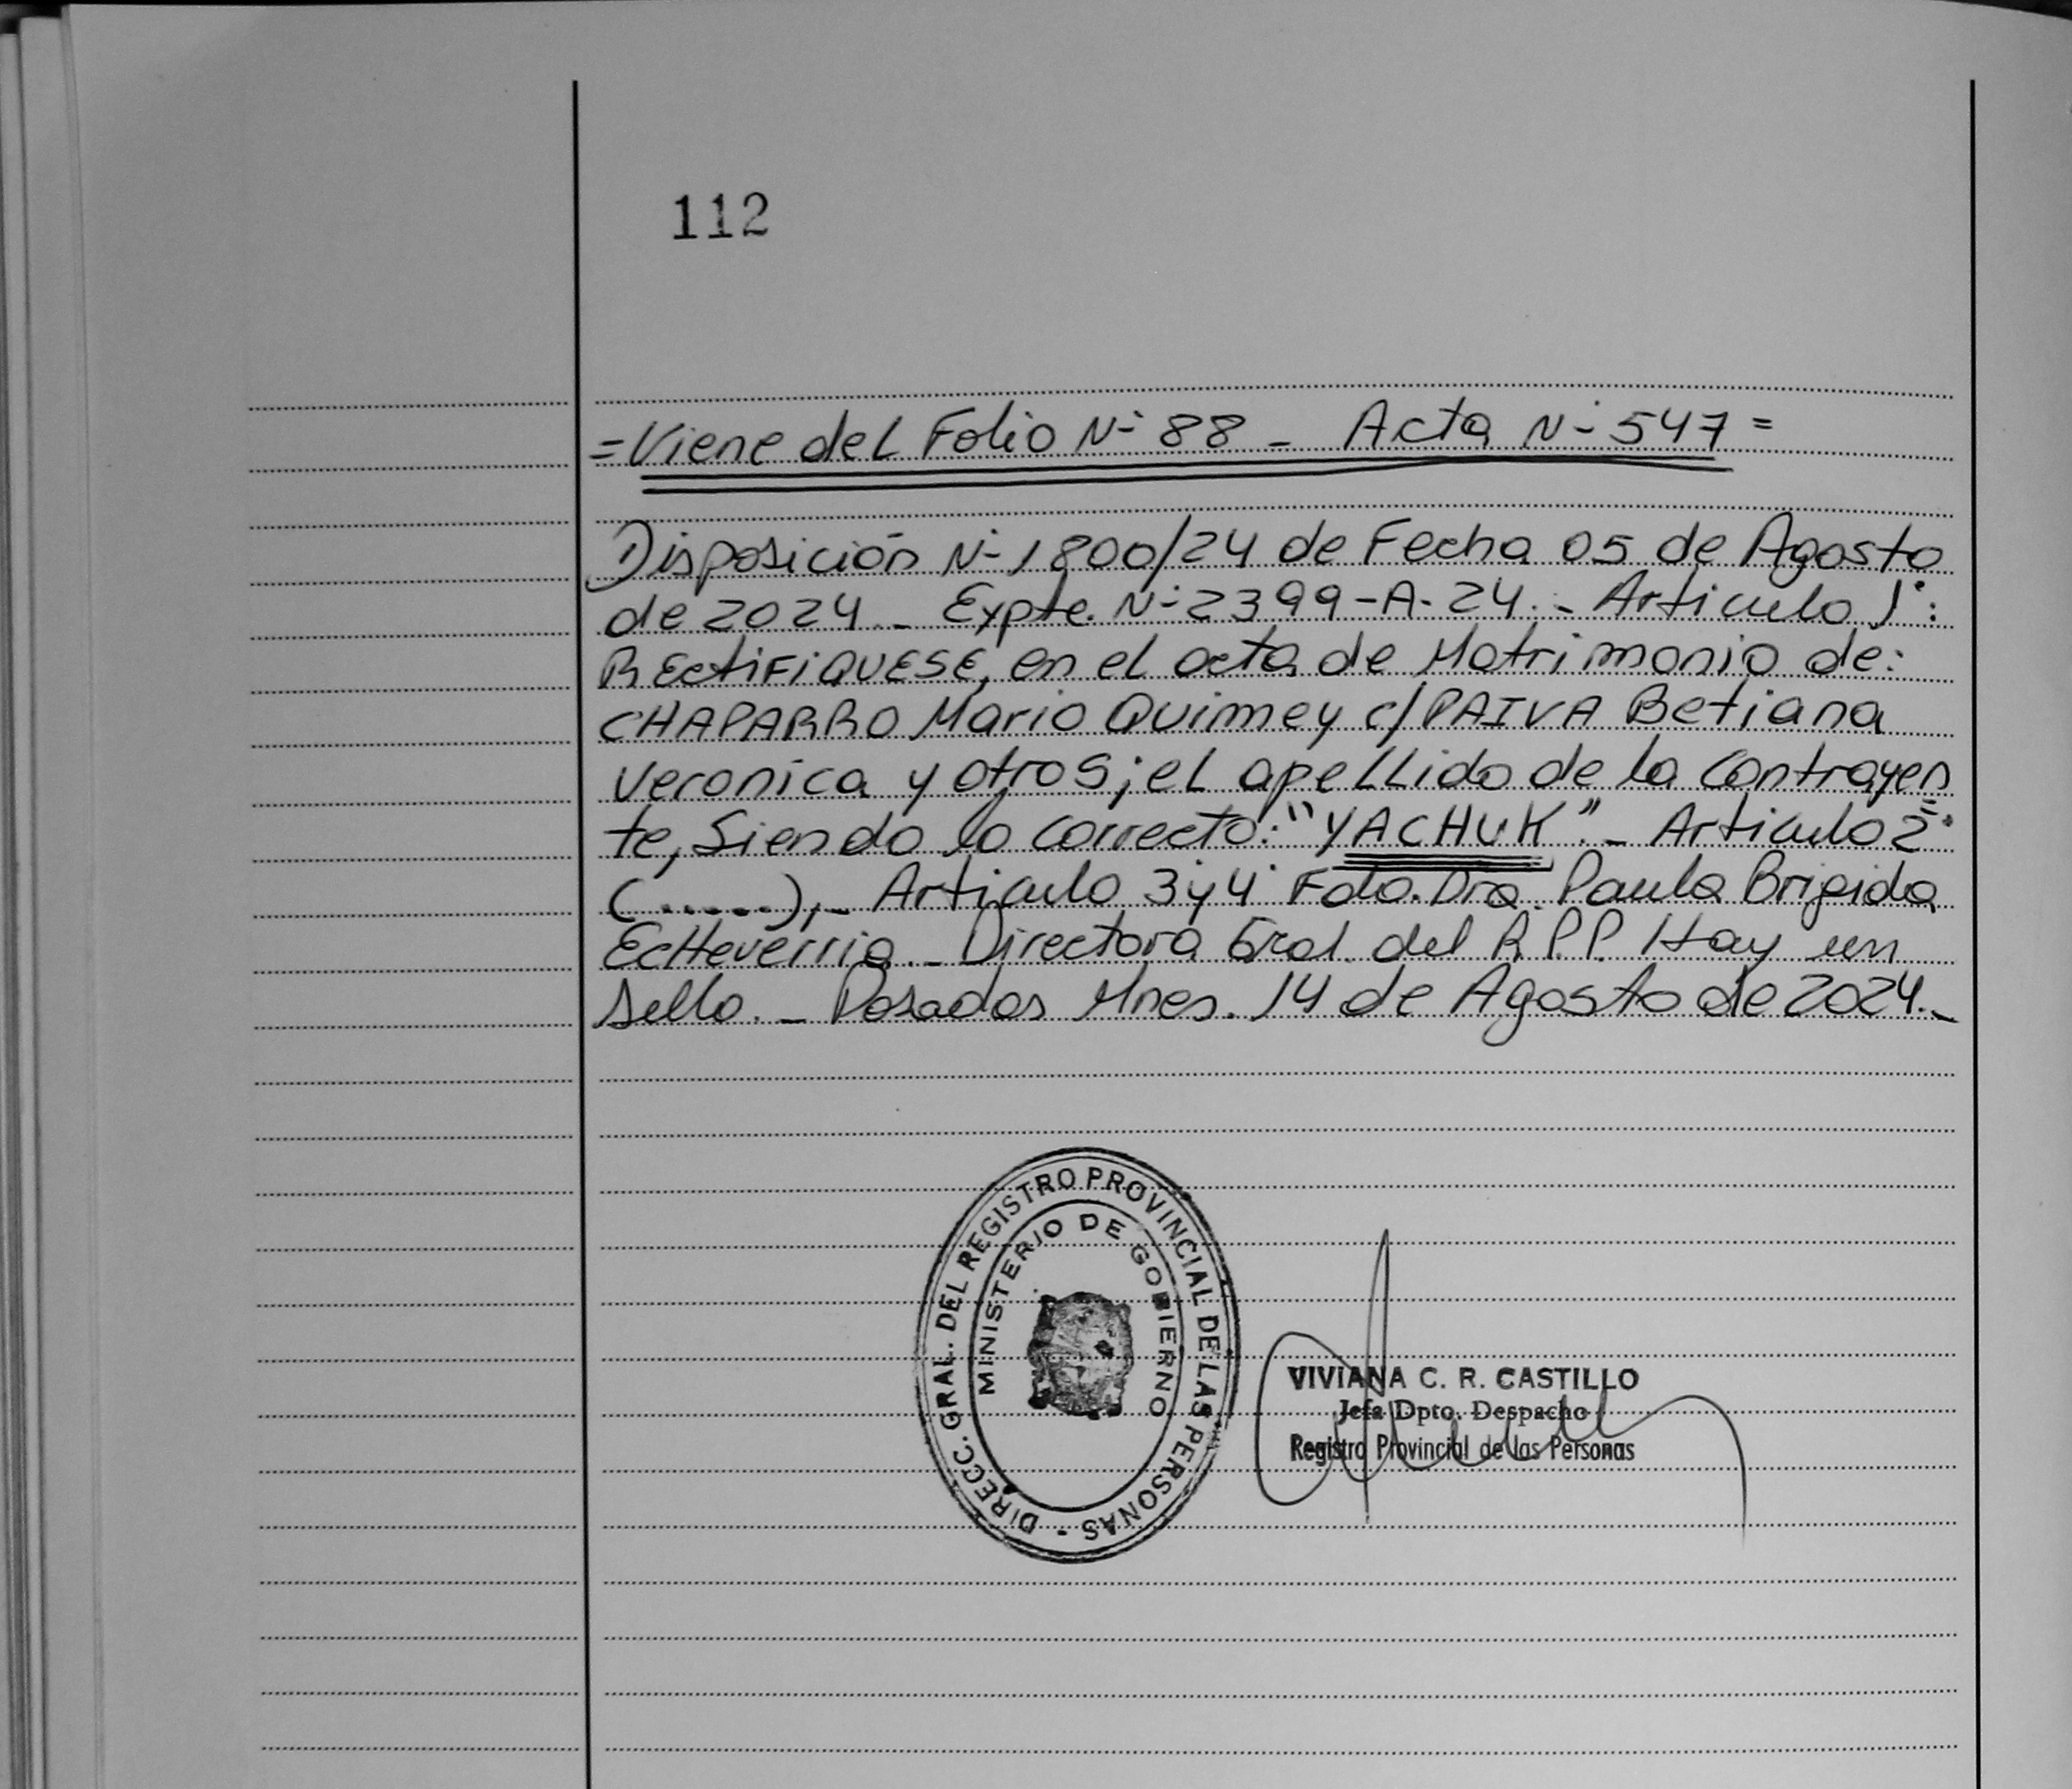 112
=Viene del Folio N° 88 - Acta N° 547=
Disposición N° 1800/24 de Fecha 05 de Agosto
de 2024._ Expte. N° 2399-A-24._ Articulo 1°:
RECtiFiQUESE, en el acta de Matrimonio de:
CHAPARRO Mario Quimey c/ PAIVA Betiana
Veronica y otros; el apellido de la Contrayen
te, Siendo lo correcto: "YACHUK"._ Articulo 2°
(......),_ Articulo 3 y 4° Fdo. Dra. Paula Brigida
Echeverria._ Directora Gral. del R.P.P. Hay un
sello._ Posadas Mnes. 14 de Agosto de 2024._
DIRECC. GRAL. DEL REGISTRO PROVINCIAL DE LAS PERSONAS -
MINISTERIO DE GOBIERNO
VIVIANA C. R. CASTILLO
Jefa Dpto. Despacho
Registro Provincial de las Personas